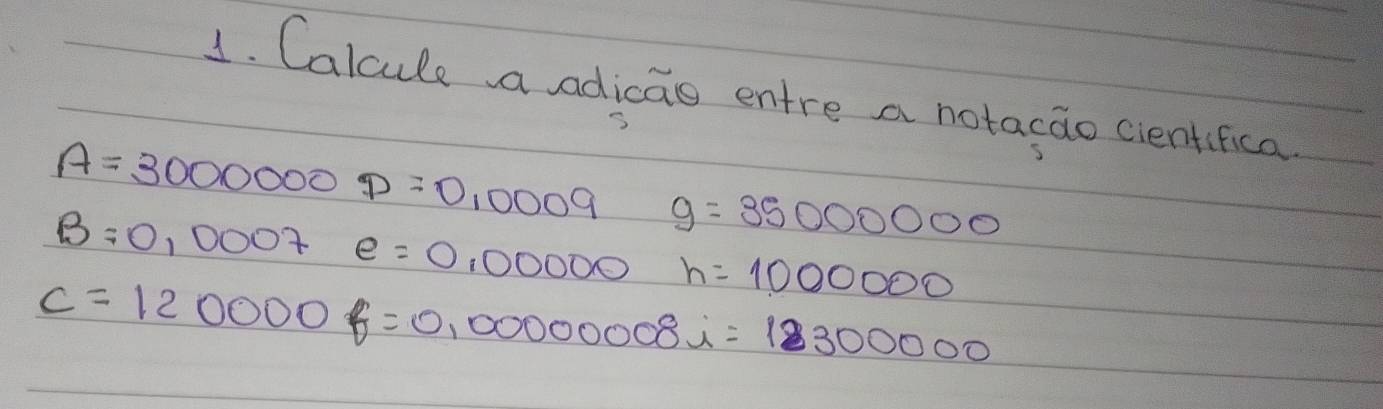 1. Calcule a adição entre a notação cientifica.
A = 3000000 D = 0,0009 g = 35000000
B = 0,0007 e = 0,00000 h = 1000000
C = 120000 f = 0,00000008 i = 12300000